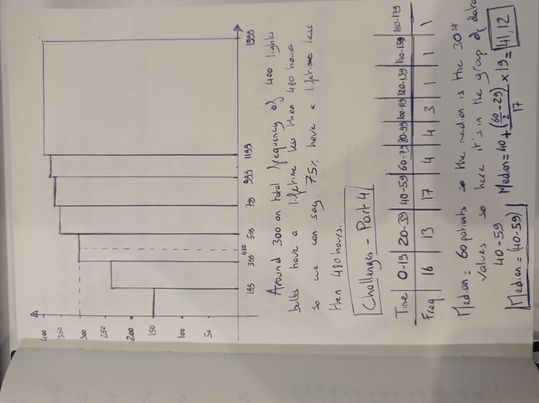 400
350
300
250
200
150
100
50
199
399
420
599
799
999
1199
1999
Around 300 on total frequency of 400 lights
bulbs have a lifetime less then 420 hours
so we can say 75% have a lifetime less
then 420 hours.
Challenges - Part 4
Time 0-19 20-39 40-59 60-79 80-99 100-119 120-139 140-159 160-179
Freq 16 13 17 4 4 3 1 1 1
Median = 60 patients so the median is the 30st
values so here it's in the group of data
40-59
Median = 40-59
Median = 40 + (60/2 - 29)/17 x 19 = 41,12